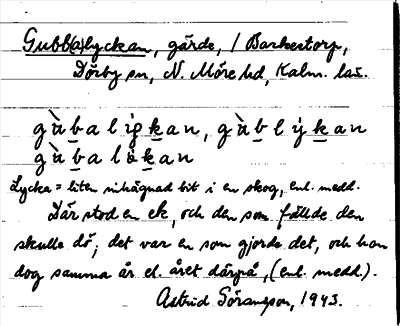 Gubb(a)lyckan, gärde, / Barkestorp,
Dörby sn, N. Möre hd, Kalm. län.
gu̇̀balykan, gùblẏkan
gùbalökan
Lycka = liten inhägnad bit i en skog, enl. medd.
Där stod en ek, och den som fällde den
skulle dö; det var en som gjorde det, och han
dog samma år el. året därpå, (enl. medd.).
Astrid Göransson, 1943.